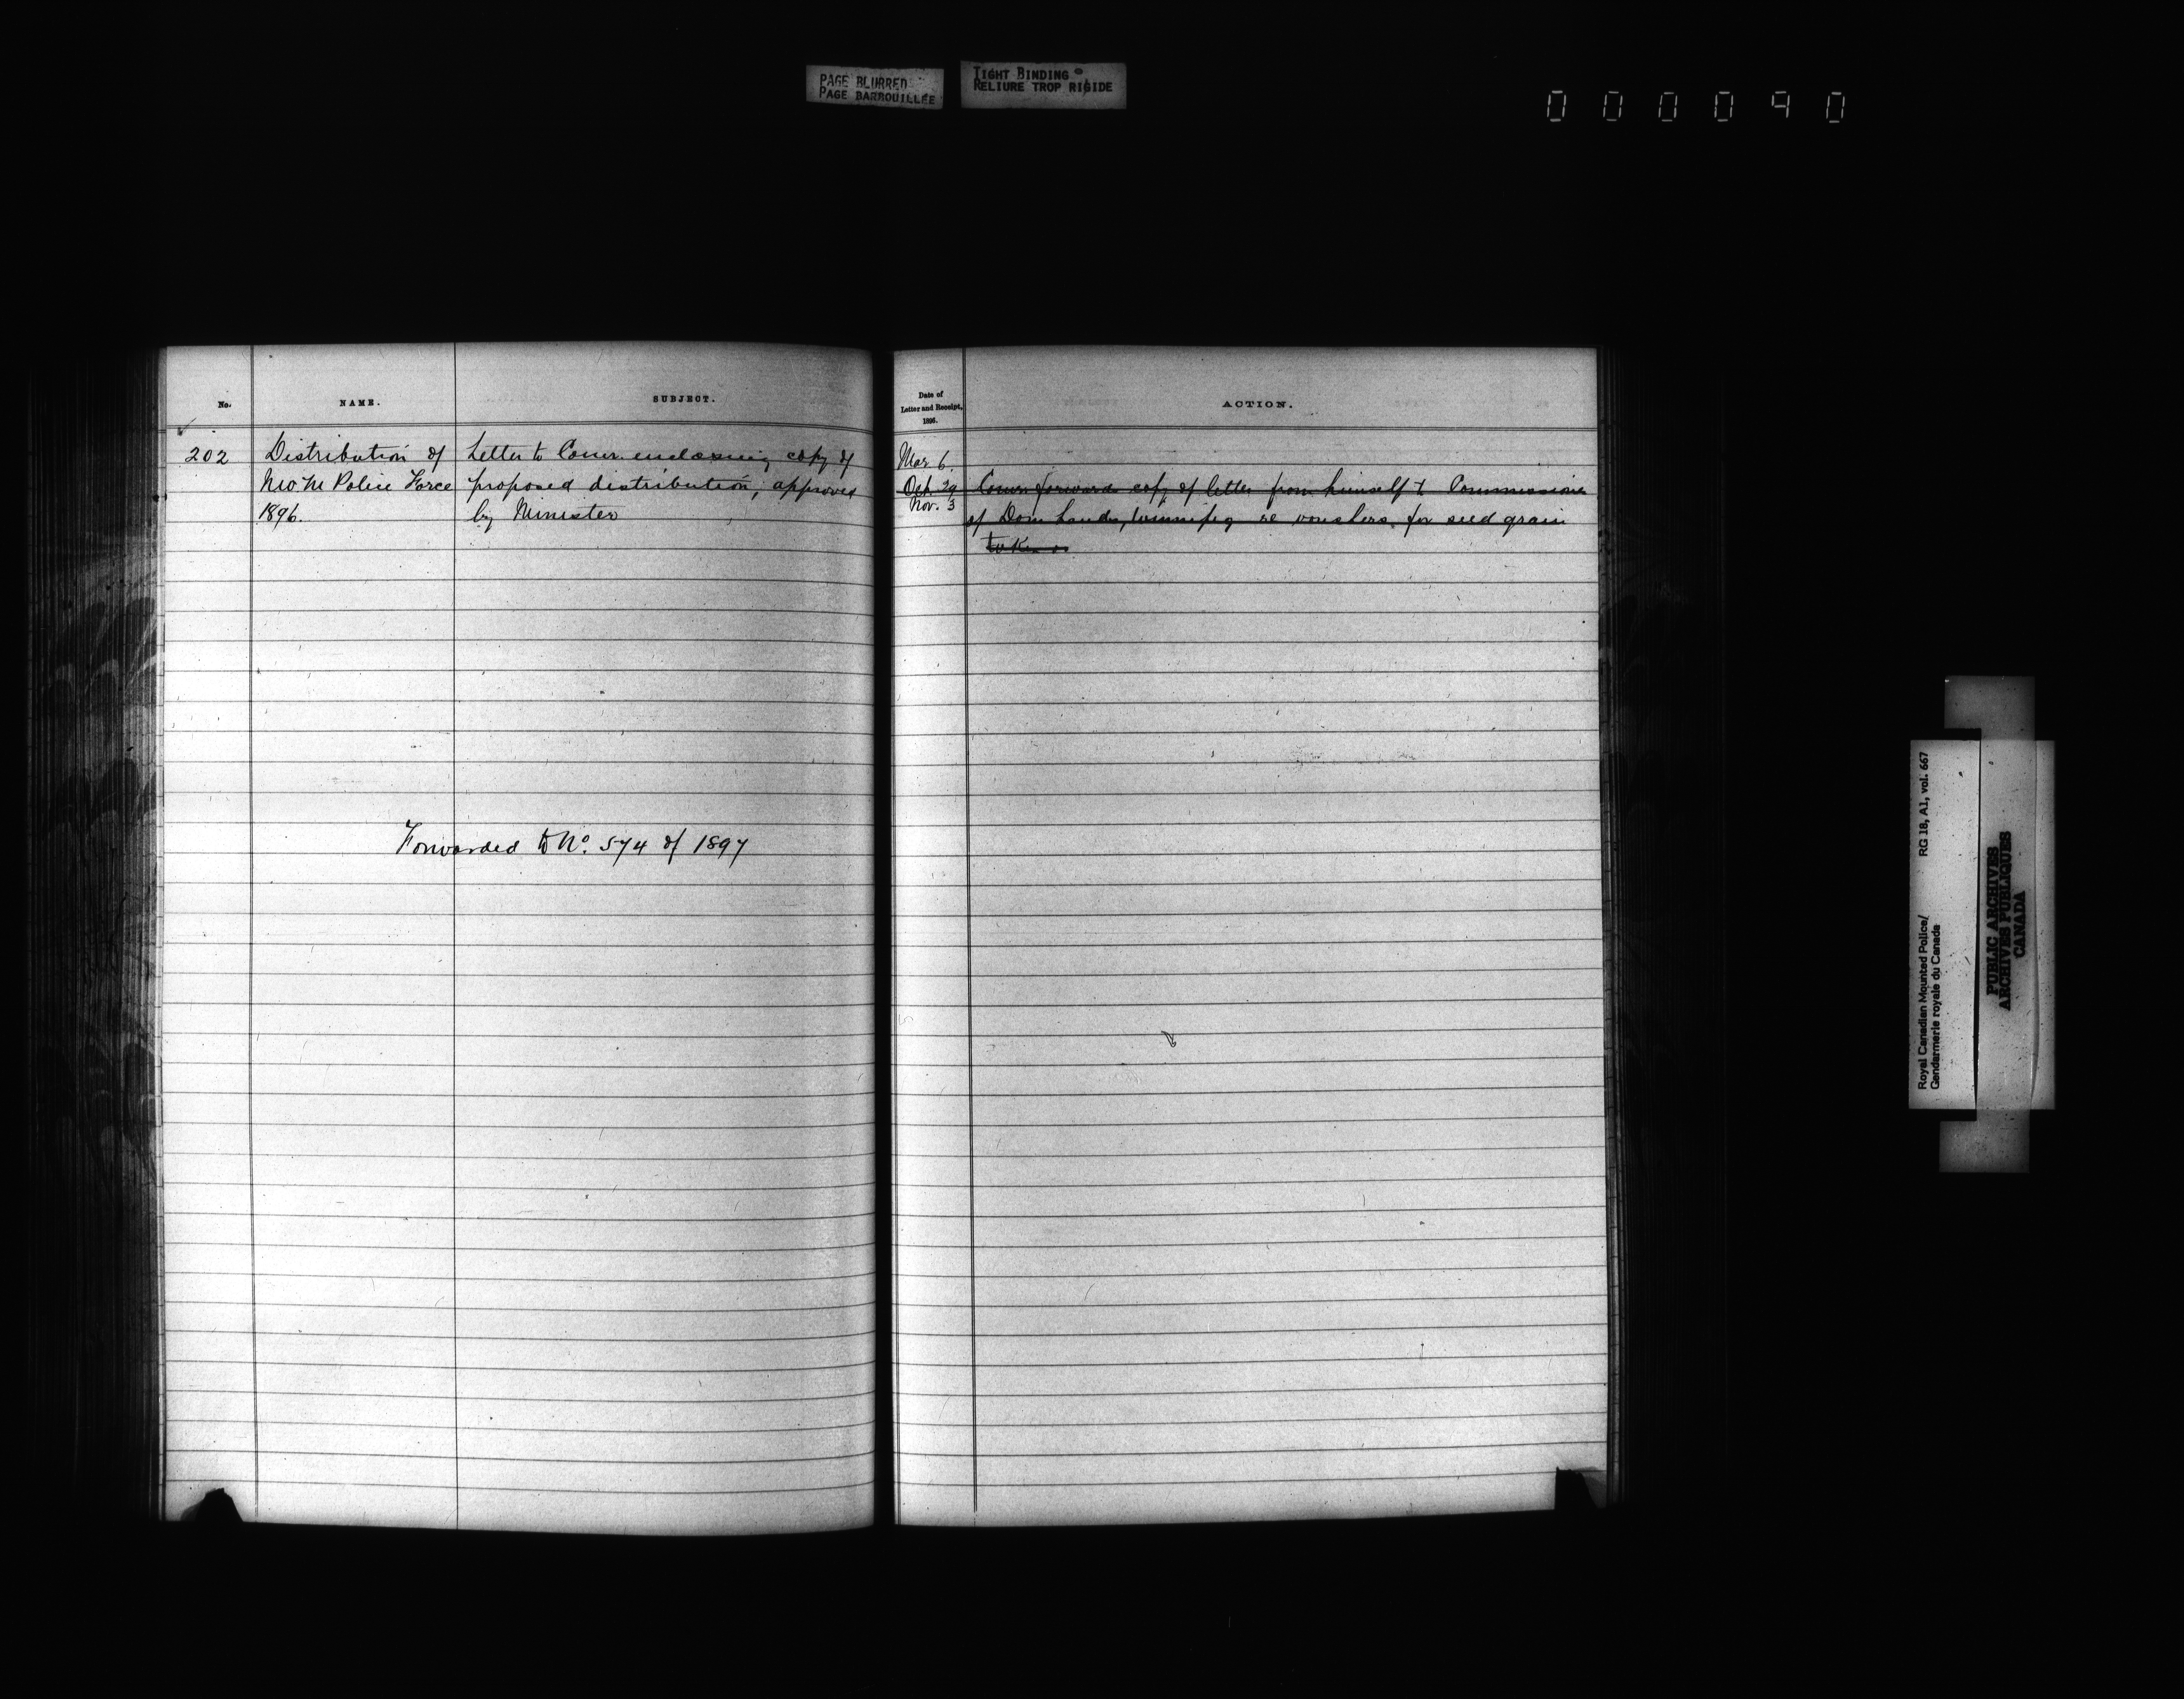 PAGE BLURRED
PAGE BARBOUILLÉE
TIGHT BINDING
RELIURE TROP RIGIDE
000090
No.
NAME.
SUBJECT.
202
Distribution of
N.W.M Police Force
1896.
Letter to Comr. enclosing copy of
proposed distribution, approved
by Minister
Forwarded to No. 574 of 1897
Date of
Letter and Receipt,
1896.
ACTION.
Mar 6.
Oct. 29
Nov. 3
Comr forwards copy of letter from himself to Commissioner
of Dom Lands, Winnipeg re vouchers for seed grain
Royal Canadian Mounted Police/
Gendarmerie royale du Canada
RG 18, A1, vol. 667
PUBLIC ARCHIVES
ARCHIVES PUBLIQUES
CANADA